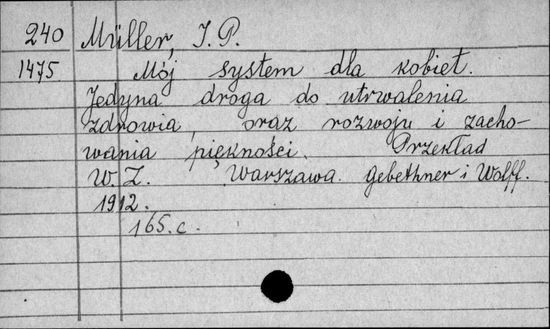 240 Müller, J. P.
1475 Mój system dla kobiet.
Jedyna droga do utrwalenia
zdrowia, oraz rozwoju i zacho-
wania piękności. Przekład
W. Z. Warszawa. Gebethner i Wolff.
1912.
165. c.